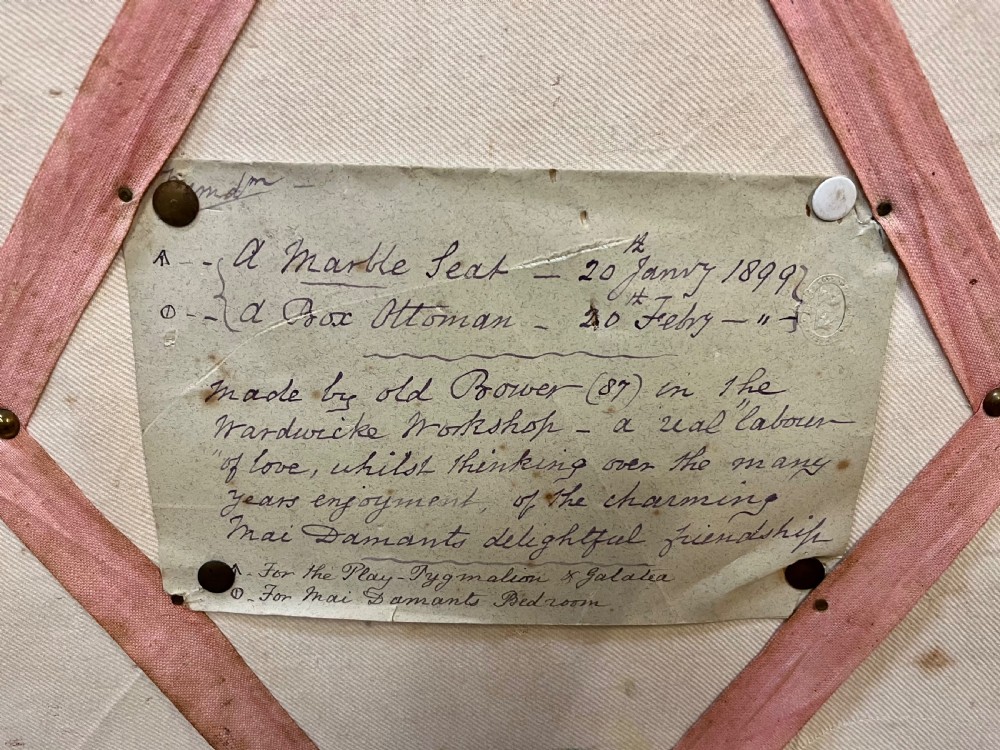 A Marble Seat — 20th Janry 1899
A Box Ottoman — 20th Febry — " —
made by old Bower (87) in the
Wardwicke Workshop — a real "labour
"of love, whilst thinking over the many
years enjoyment, of the charming
Mai Damants delightful friendship
For the Play - Pygmalion & Galatea
For Mai Damants Bedroom.